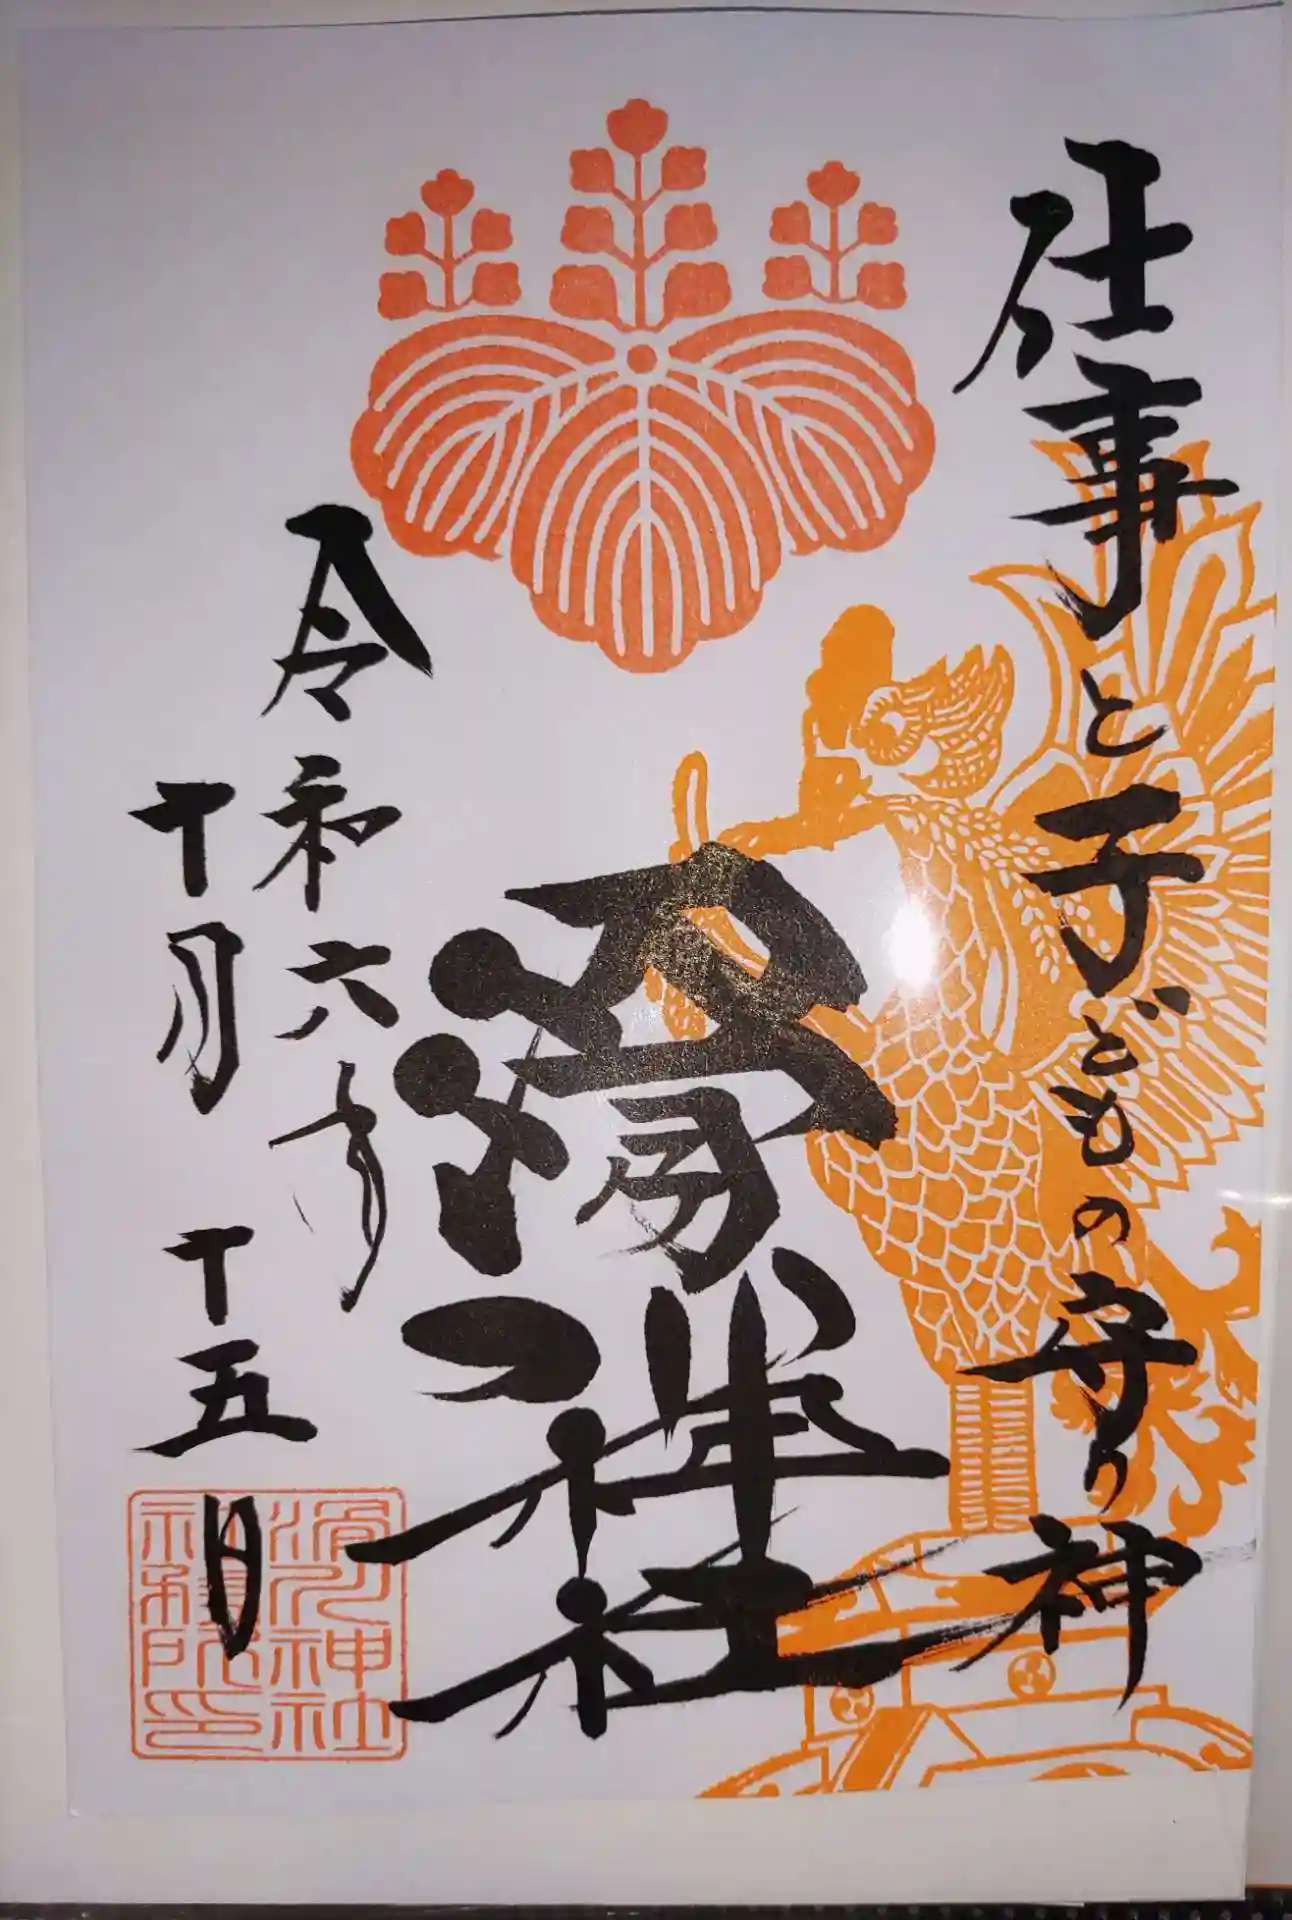 仕事と子どもの守り神
滑川神社
令和六年
十月十五日
滑川神社
社務所印